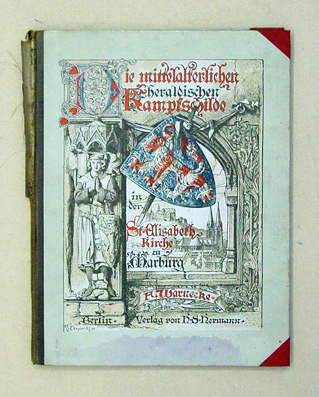 Die mittelalterlichen
heraldischen
Kampfschilde
in
der
St. Elisabeth-
Kirche
zu
Marburg
F. Warnecke.
Berlin.
Verlag von H. S. Hermann.